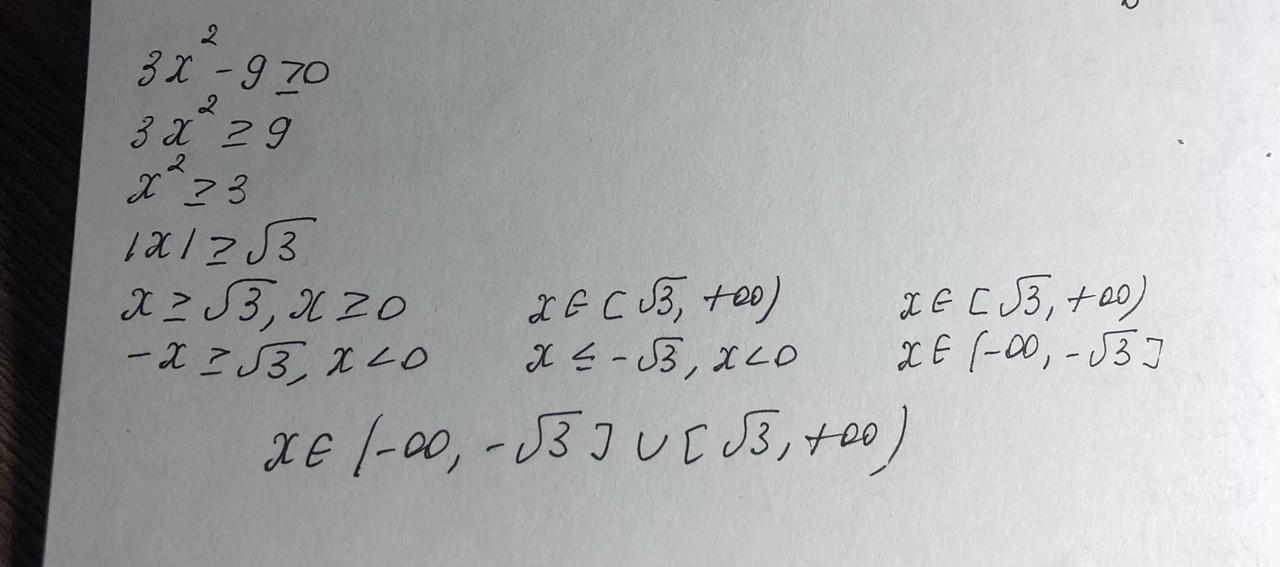 3x² - 9 ≥ 0
3x² ≥ 9
x² ≥ 3
|x| ≥ √3
x ≥ √3, x ≥ 0 x ∈ [√3, +∞) x ∈ [√3, +∞)
-x ≥ √3, x < 0 x ≤ -√3, x < 0 x ∈ (-∞, -√3]
x ∈ (-∞, -√3] ∪ [√3, +∞)